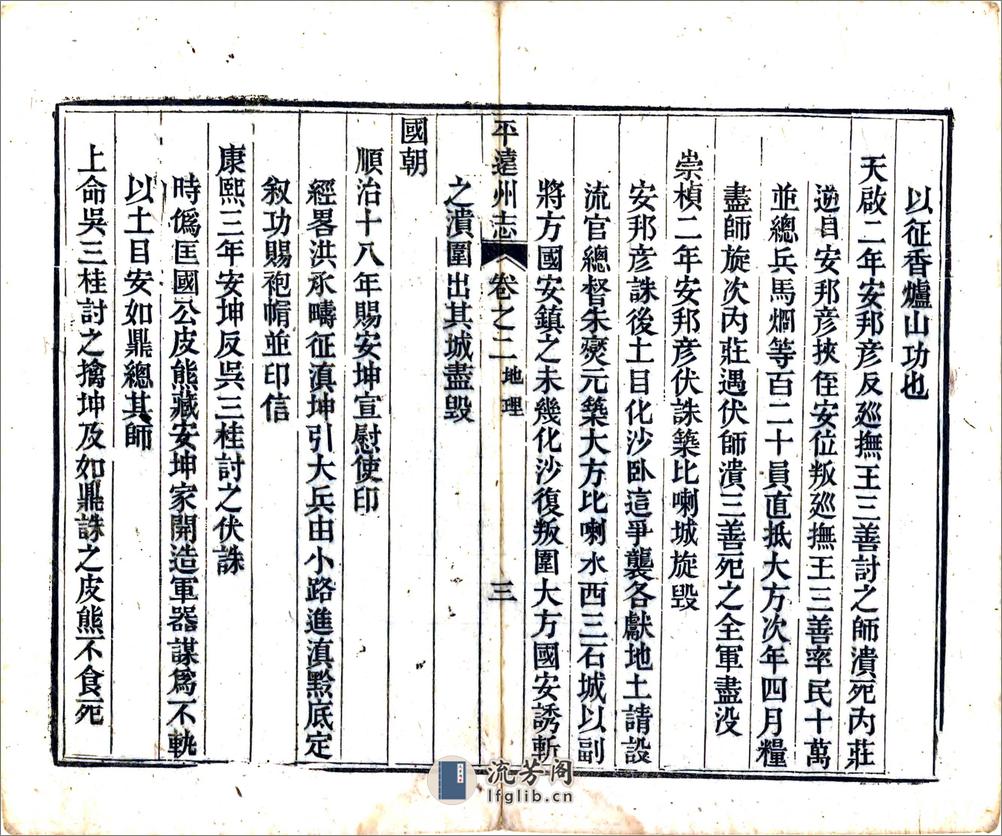 以征香爐山功也
天啟二年安邦彥反巡撫王三善討之師潰死內莊
逆目安邦彥挾侄安位叛巡撫王三善率民十萬
並總兵馬烱等百二十員直抵大方次年四月糧
盡師旋次內莊遇伏師潰三善死之全軍盡没
崇楨二年安邦彥伏誅築比喇城旋毀
安邦彥誅後土目化沙卧這爭襲各獻地土請設
流官總督朱燮元築大方比喇水西三石城以副
將方國安鎮之未幾化沙復叛圍大方國安誘斬
平遠州志 卷之二 地理 三
之潰圍出其城盡毀
國朝
順治十八年賜安坤宣慰使印
經畧洪承疇征滇坤引大兵由小路進滇黔底定
叙功賜袍帽並印信
康熙三年安坤反吳三桂討之伏誅
時僞匡國公皮熊藏安坤家開造軍器謀爲不軌
以土目安如鼎總其師
上命吳三桂討之擒坤及如鼎誅之皮熊不食死
流芳阁
lfglib.cn